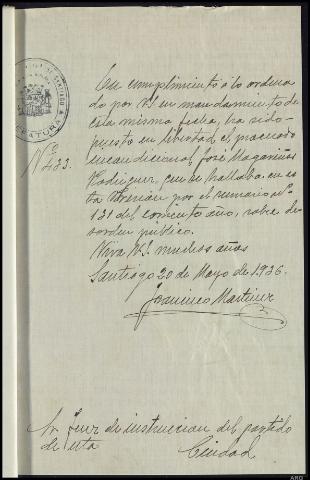 En cumplimiento á lo ordena
do por V.I. en mandamiento de
esta misma fecha, ha sido
puesto en libertad el procesado
incondicional, José Magariños
Rodriguez, que se hallaba en es
ta Prisión por el sumario nº
131 del corriente año, sobre de
sorden público.
Viva V.I. muchos años
Santiago 20 de Mayo de 1.936.
Francisco Martinez
Nº
433.
Sr. Juez de instruccion del partido
de esta Ciudad